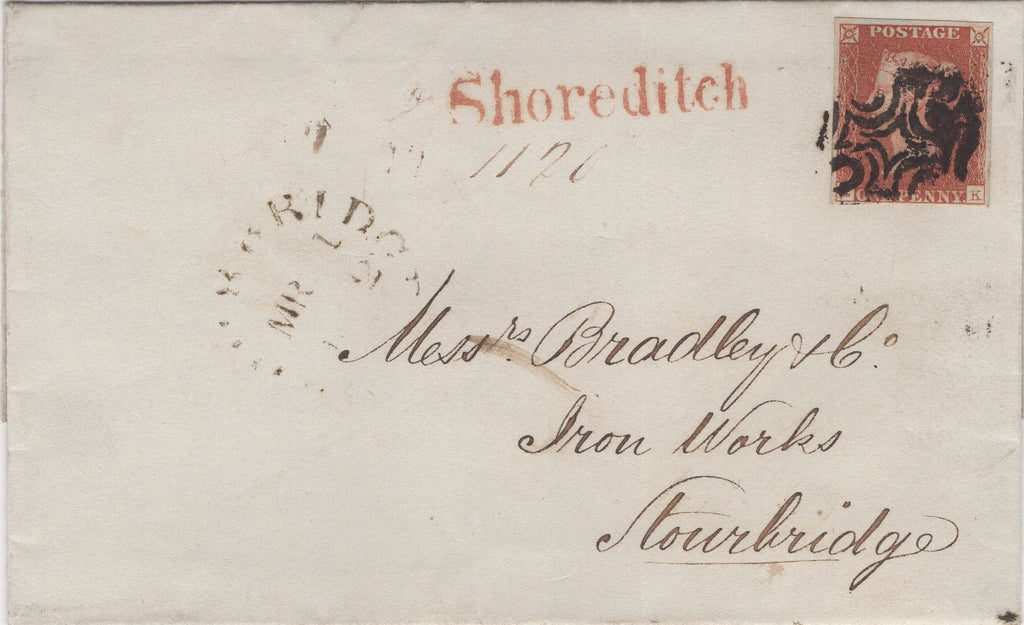 POSTAGE
Shoreditch
1120
PENNY
K
MR
Messrs Bradley & Co.
Iron Works
Stourbridge